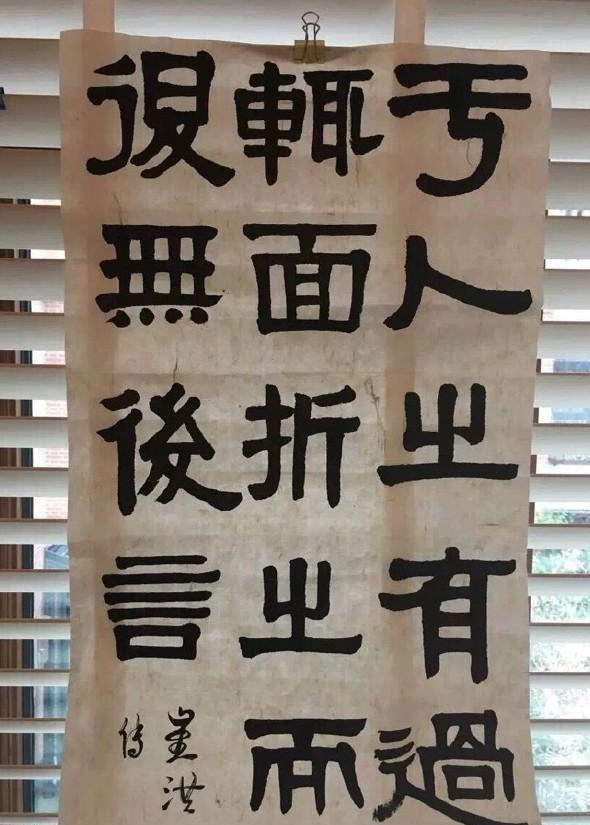 于人之有過
輒面折之而
退無後言
崔洪
傳